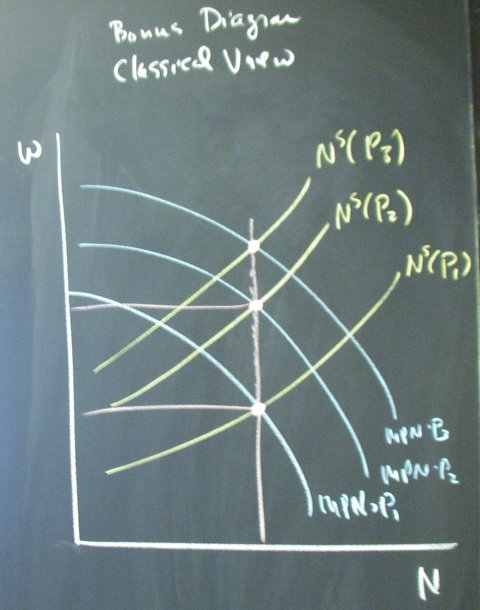 Bonus Diagram
Classical View
W
Nˢ(P₃)
Nˢ(P₂)
Nˢ(P₁)
MPN·P₃
MPN·P₂
MPN·P₁
N